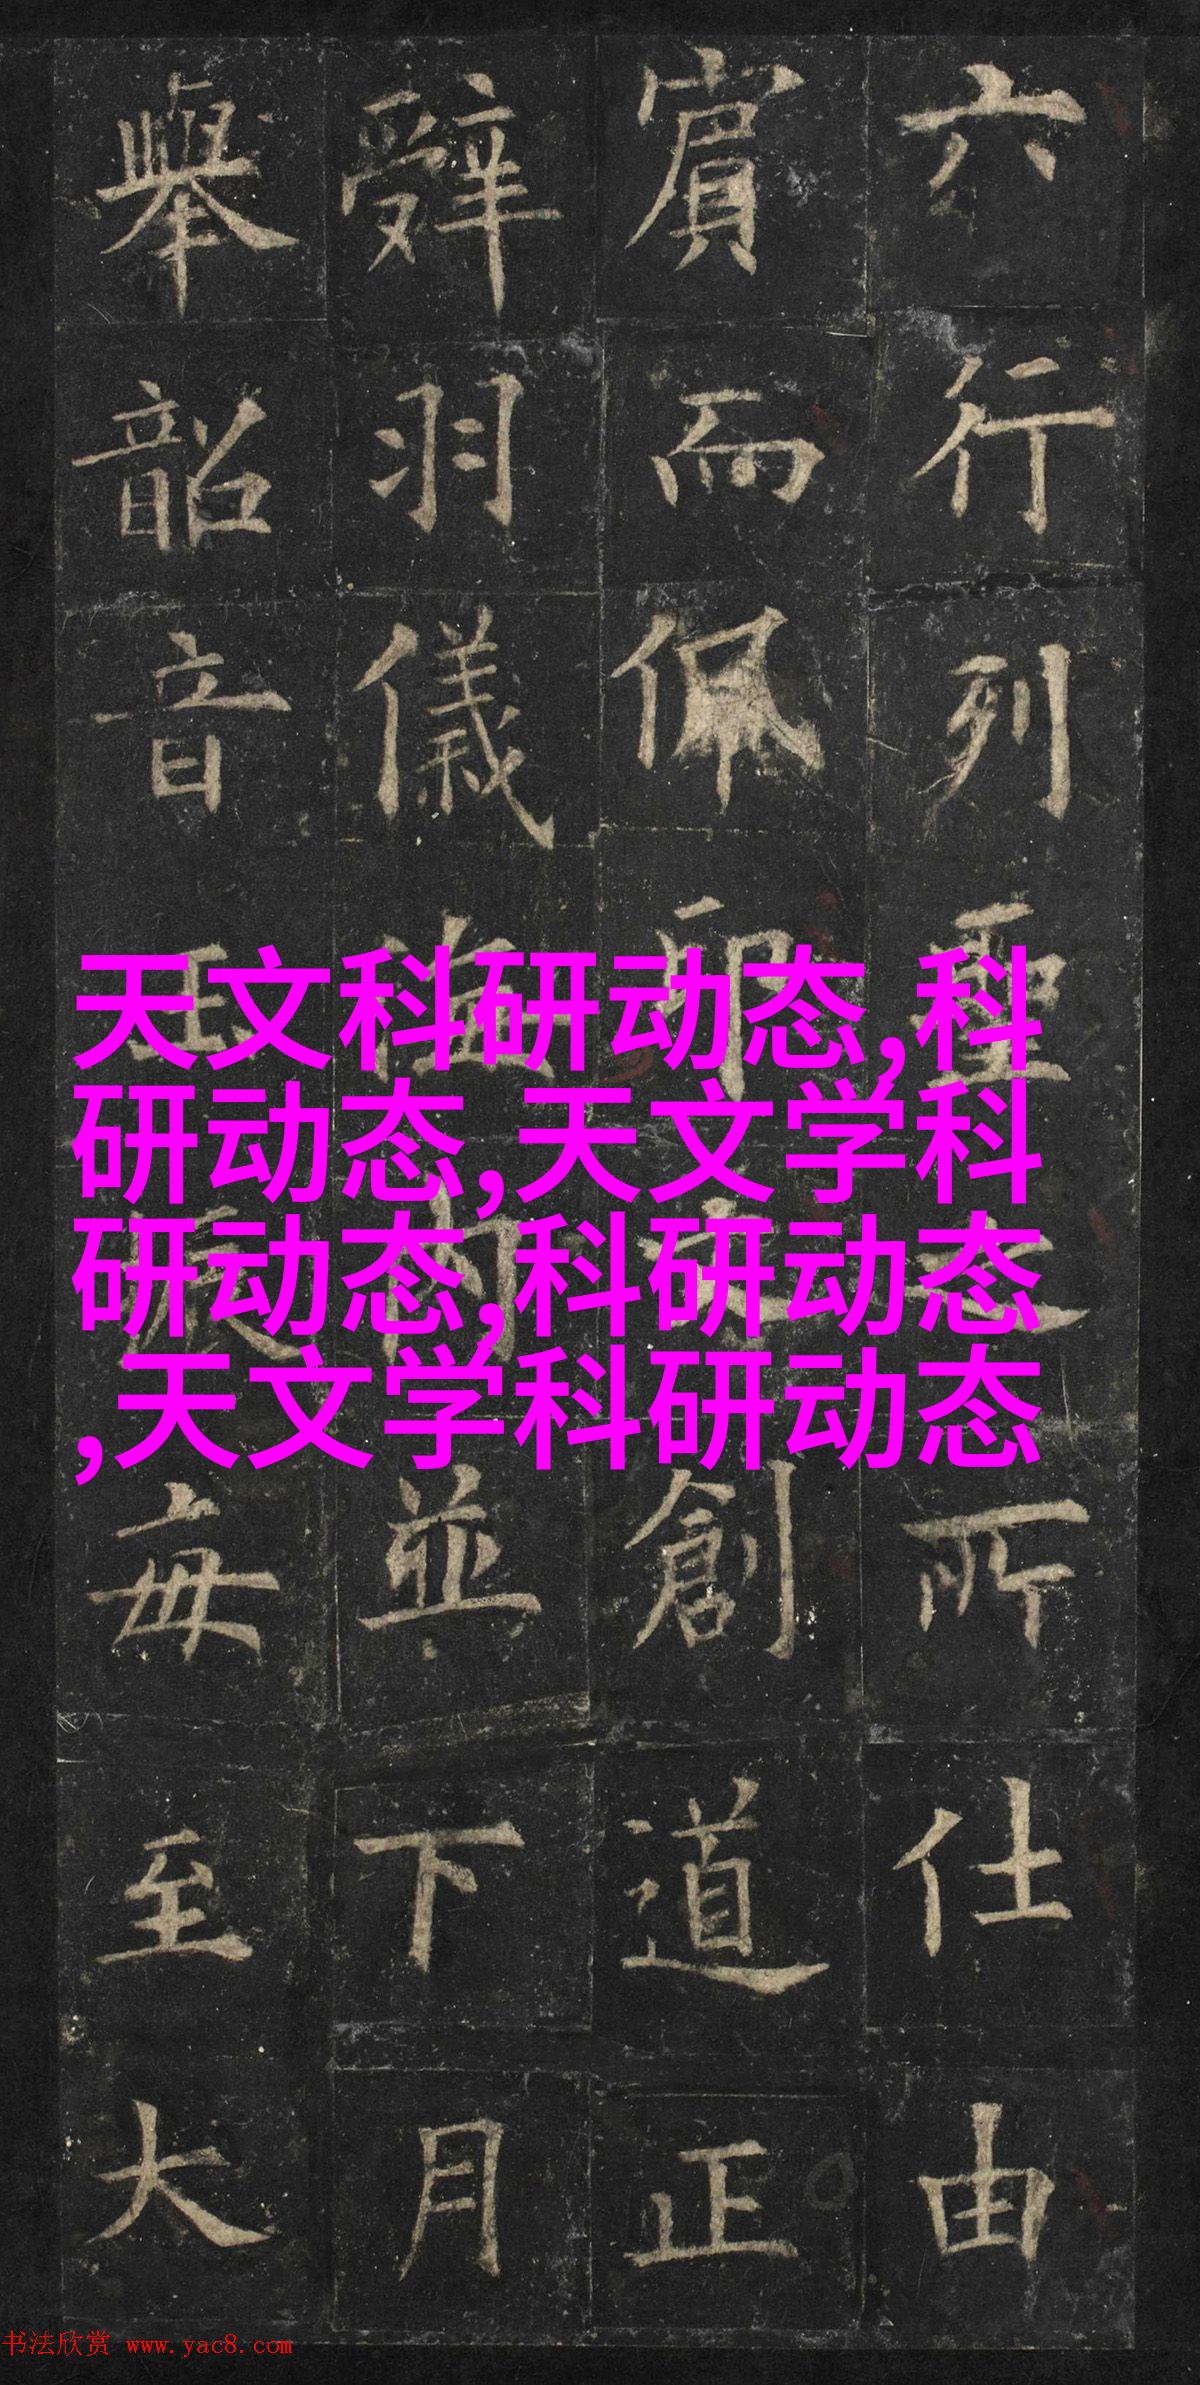 六行列聖之所仕由
賔而佩創道正
辤羽儀内並下月
舉韶音每至大
天文科研动态,科
研动态,天文学科
研动态,科研动态
,天文学科研动态
书法欣赏 www.yac8.com